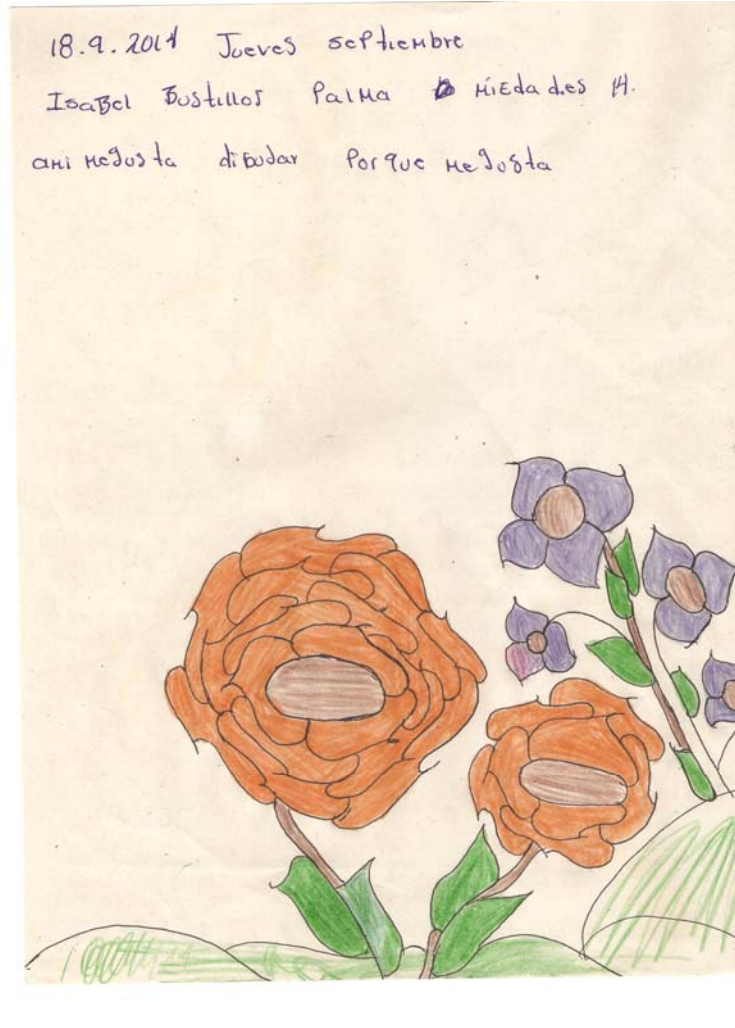 18.9.2011 Jueves septiembre
IsaBel Bustillos Palma miEdad.es 14.
ami megusta dibudar Porque megusta